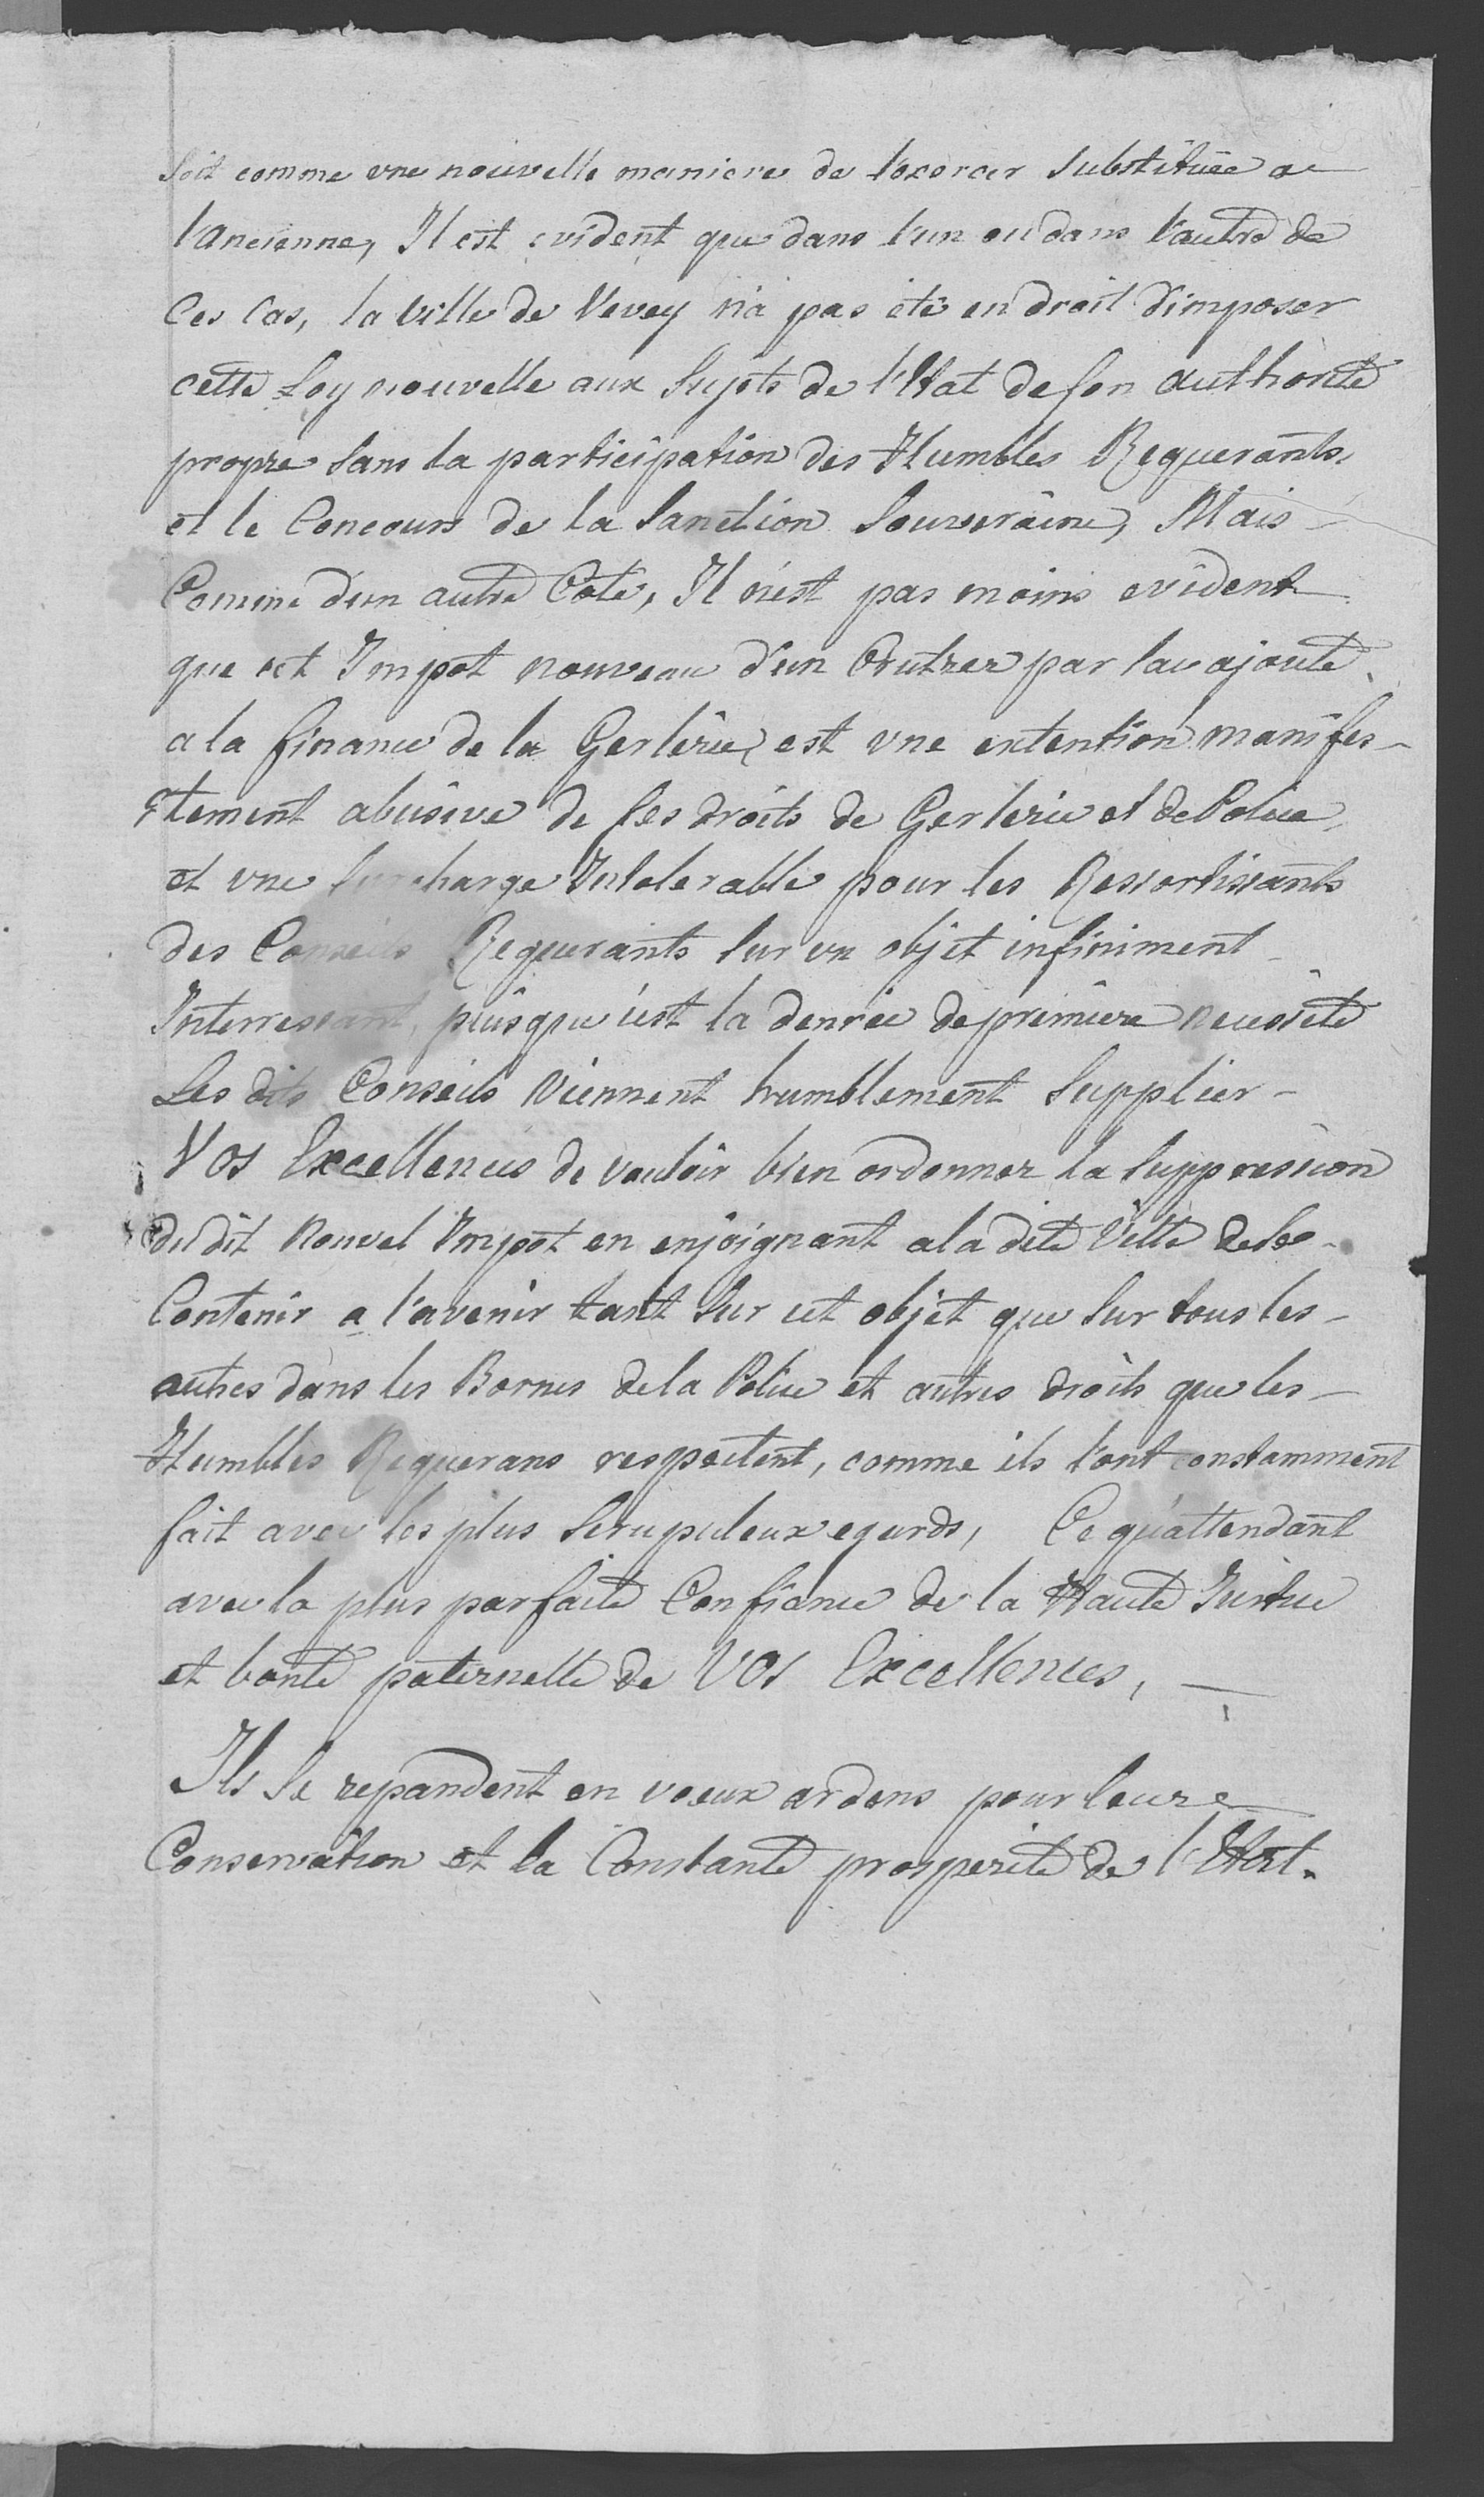 Soit comme une nouvelle maniere de l'exercer Substituée a
l'Ancienne, Il est evident que dans l'un ou dans l'autre de
Ces Cas, la Ville de Vevey n'a pas eté en droit d'imposer
cette Loy nouvelle aux Sujets de l'Etat de son authorité
propre Sans la participation des Humbles Requerants,
et le Concours de la Sanction Souveraine, Mais
Comme d'un autre Coté, Il n'est pas moins evident
que cet Impot nouveau d'un Crutzer par sac ajouté
a la finance de la Gerlerie, est une extention manifes-
stement abusive de ses droits de Gerlerie et de Police,
et une Surcharge Intolerable pour les Ressortissants
des Conseils Requerants Sur un objet infiniment
Interressant, puisque c'est la denrée de premiere necessité
Les dits Conseils viennent humblement Supplier
Vos Excellences de vouloir bien ordonner la Suppression
du dit nouvel Impot en enjoignant a la dite Ville de se
Contenir a l'avenir tant Sur cet objet que Sur tous les
autres dans les Bornes de la Police et autres droits que les
Humbles Requerans respectent, comme ils l'ont constamment
fait avec les plus Scrupuleux egards, Ce qu'attendant
avec la plus parfaite Confiance de la Haute Justice
et bonté paternelle de Vos Excellences,
Ils Se repandent en voeux ardens pour leure
Conservation et la Constante prosperité de l'Etat.